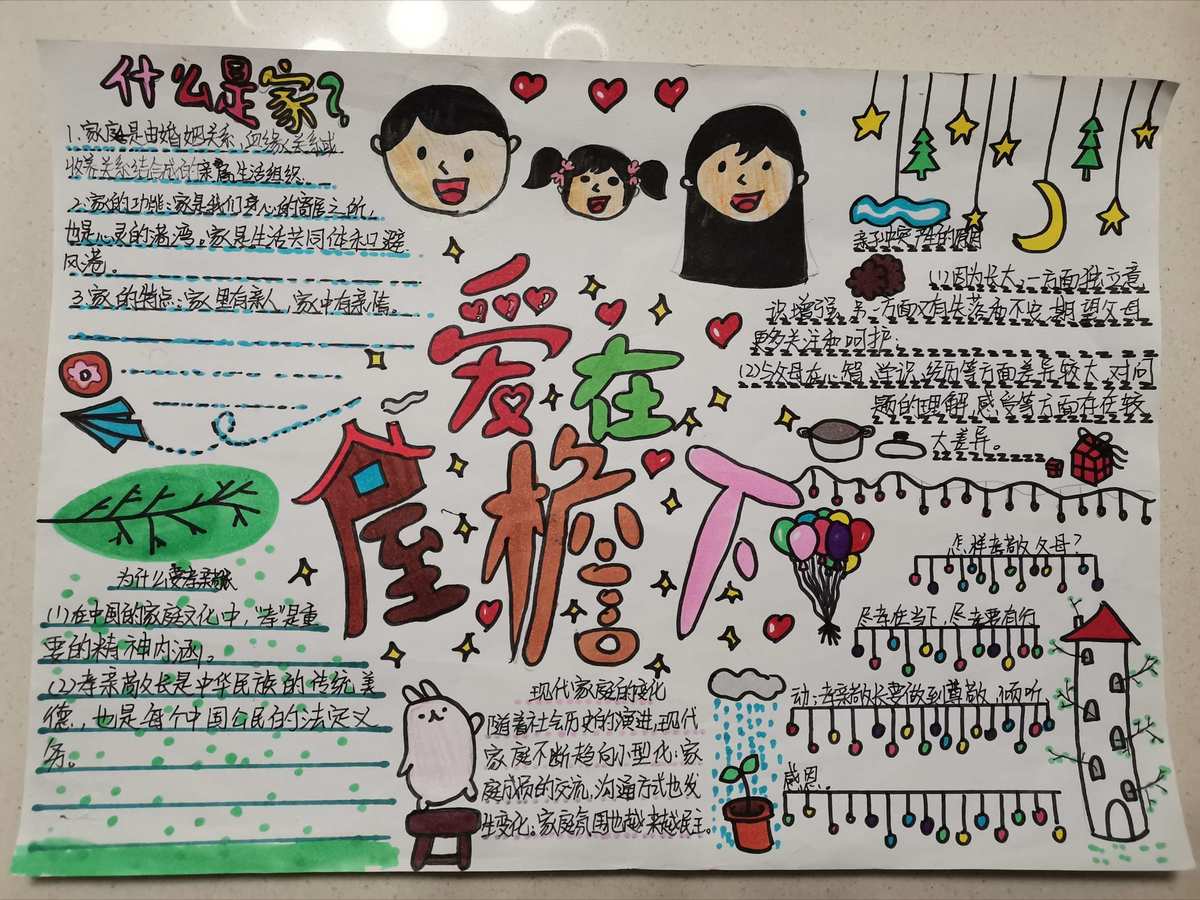 什么是家?
1.家庭是由婚姻关系,血缘关系或
收养关系结合成的亲属生活组织.
2.家的功能:家是我们身心的寄居之所,
也是心灵的港湾。家是生活共同体和避
风港。
3.家的特点:家里有亲人,家中有亲情。
爱在
屋檐下
亲子冲突产生的原因
(1)因为长大,一方面独立意
识增强,另一方面又有失落和不安,期望父母
更多关注和呵护;
(2)与父母在心智,学识,经历等方面差异较大,对问
题的理解,感受等方面存在较
大差异。
为什么要孝亲敬长
(1)在中国的家庭文化中,“孝”是重
要的精神内涵。
(2)孝亲敬长是中华民族的传统美
德,也是每个中国公民的法定义
务。
现代家庭的变化
随着社会历史的演进,现代
家庭不断趋向小型化;家
庭成员的交流,沟通方式也发
生变化;家庭氛围也越来越民主。
怎样孝敬父母?
尽孝在当下,尽孝要有行
动;孝亲敬长要做到尊敬,倾听
感恩。